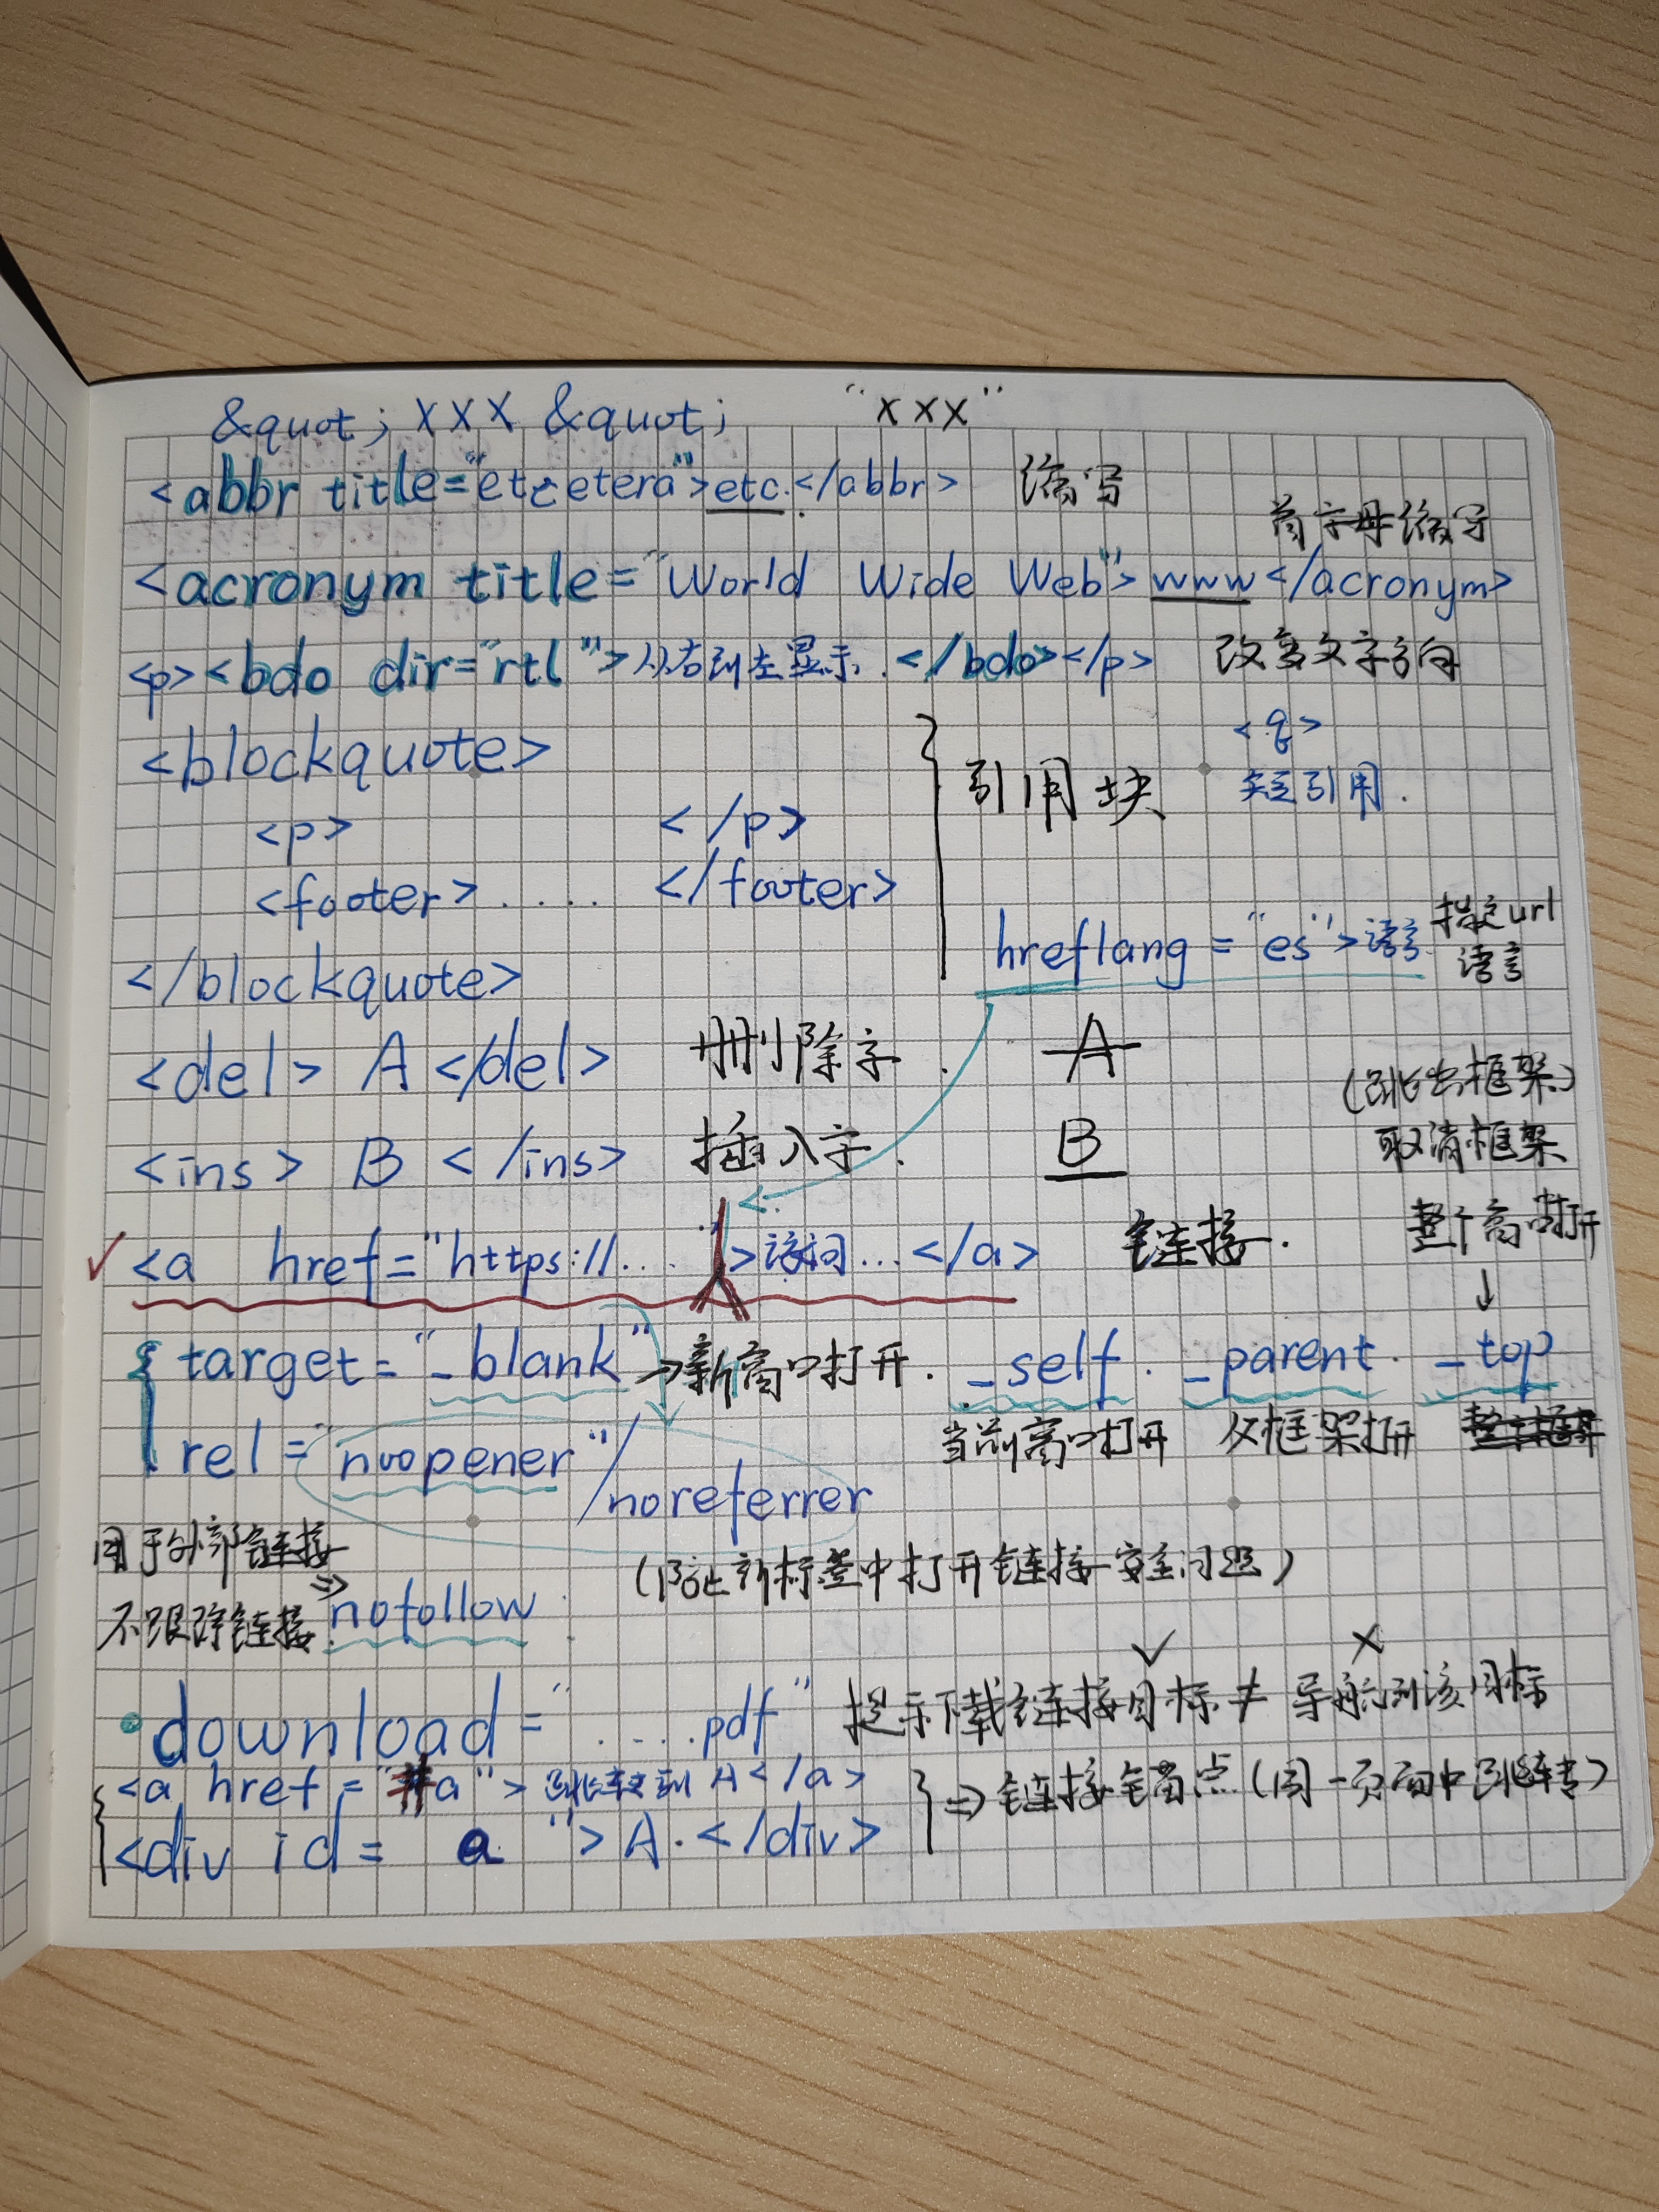 &quot; XXX &quot; "XXX"
<abbr title="etcetera">etc.</abbr> 缩写
首字母缩写
<acronym title="World Wide Web">www</acronym>
<p><bdo dir="rtl">从右到左显示.</bdo></p> 改变文字方向
<blockquote>
<q>
引用块 短引用.
<p> </p>
<footer>.... </footer>
hreflang="es">语言 指定url
语言
</blockquote>
<del> A </del> 删除字. A
(跳出框架)
<ins> B </ins> 插入字. B 取消框架
✓<a href="https://....">访问...</a> 链接. 整个窗口打开
↓
{ target="_blank" →新窗口打开. _self. _parent. _top
当前窗口打开 父框架打开
rel="noopener"/noreferrer
用于外部链接 (防止新标签中打开链接安全问题)
不跟踪链接 ⇒ nofollow
✓ ×
download=".....pdf" 提示下载链接目标 ≠ 导航到该目标
{ <a href="#a">跳转到A</a>
<div id= a ">A.</div> } ⇒链接锚点(同一页面中跳转)